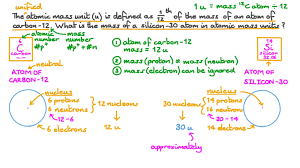 unified
1 u = mass ¹²C atom ÷ 12
The atomic mass unit (u) is defined as 1/12 th of the mass of an atom of
carbon-12. What is the mass of a silicon-30 atom in atomic mass units?
atomic number #p⁺
mass number #p⁺ + #n
6
C
carbon
neutral
ATOM OF
CARBON-12
① atom of carbon-12
mass = 12 u
② mass (proton) ≈ mass (neutron)
③ mass (electron) can be ignored
14
Si
silicon
neutral
ATOM OF
SILICON-30
nucleus
6 protons
6 neutrons
12 nucleons
12-6
6 electrons
12 u
nucleus
30 nucleons
14 protons
16 neutrons
30-14
30 u
14 electrons
approximately